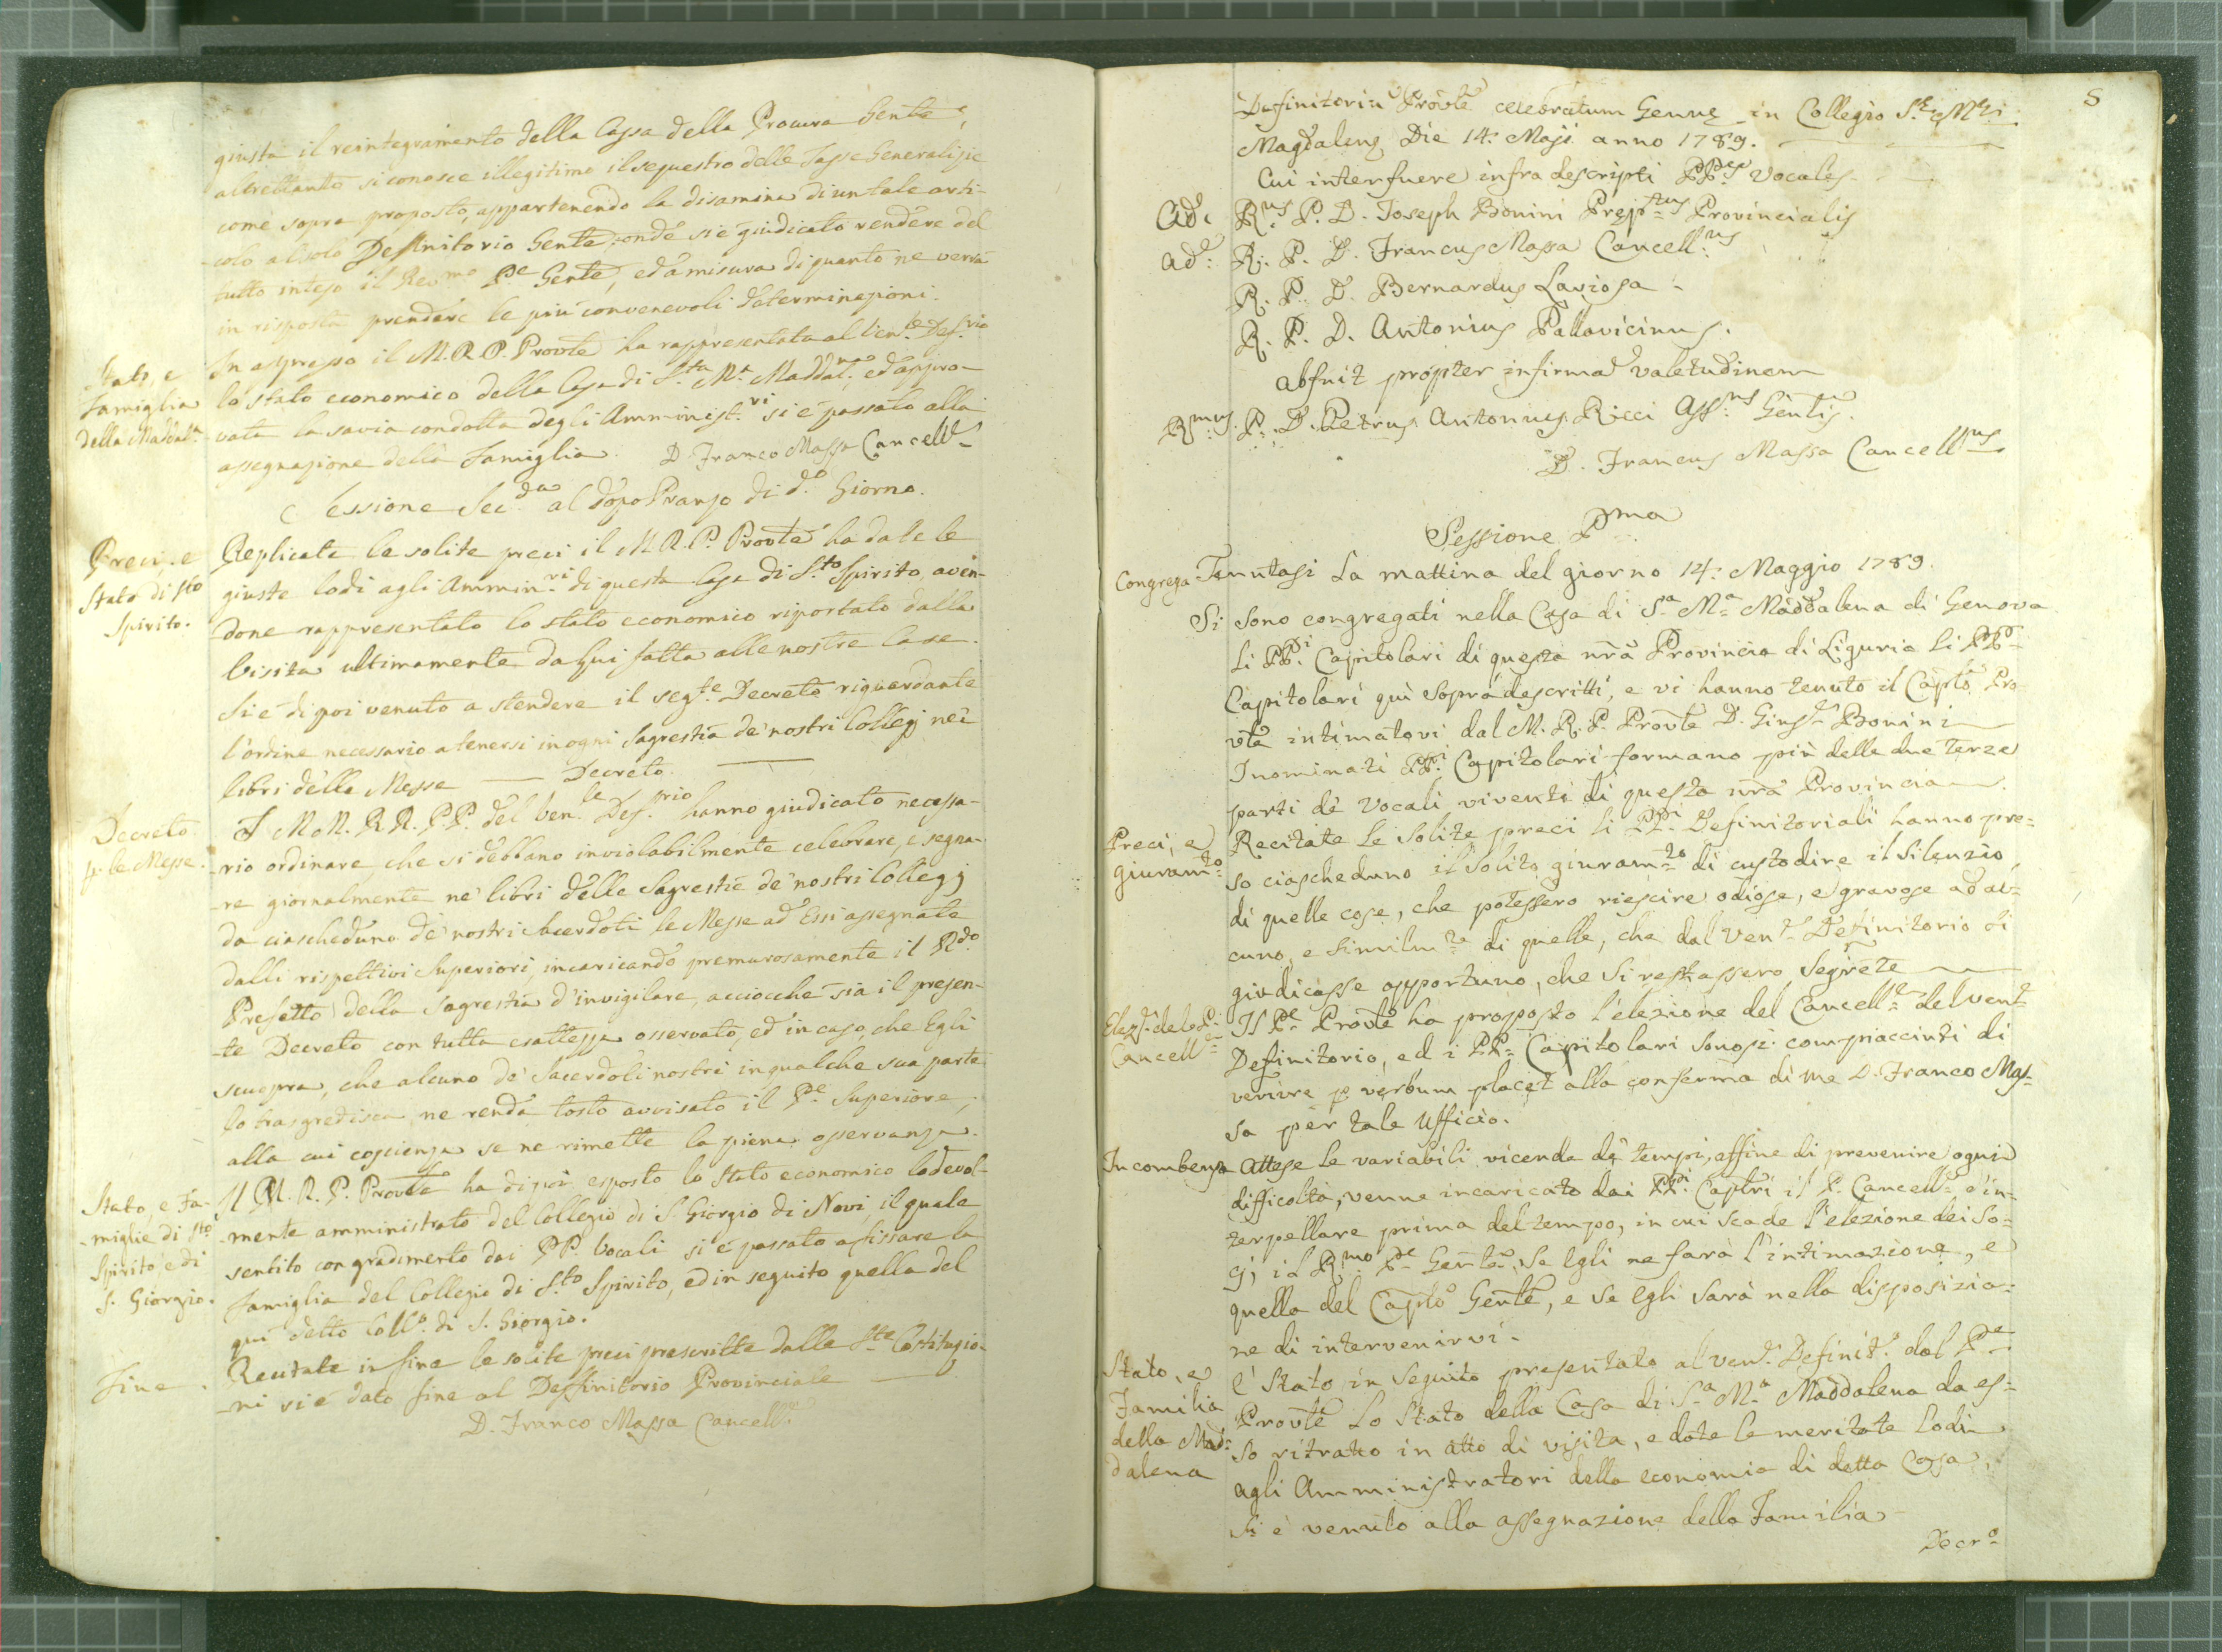 giusta il reintegramento della Cassa della Procura Gen̄le,
altrettanto si conosce illegitimo il sequestro delle Tasse Generalizie
come sopra proposto, appartenendo la disamina di un tale arti-
-colo al solo Definitorio Gen̄le; onde si è giudicato rendere del
tutto inteso il Rev.mo P.e Gen̄le, ed a misura di quanto ne verrà
in risposta prendere le più convenevoli determinazioni.
Stato, e
Famiglia
della Maddal.a
In appresso il M.R.P. Prov̄le ha rappresentata al Ven.le Def.rio
lo stato economico della Casa di S.ta M.a Maddal.na, ed appro-
vata la savia condotta degli Amminist.vi si è passato alla
assegnazione della Famiglia. D. Franco Massa Cancell.e
Sessione Sec.da al dopo Pranzo di d.o Giorno.
Preci, e
Stato di Sto
Spirito.
Replicate le solite preci il M.R.P. Prov̄le ha date le
giuste lodi agli Ammin.vi di questa Casa di S.to Spirito, aven-
done rappresentato lo stato economico riportato dalla
Visita ultimamente da Lui fatta alle nostre Case.
Si è di poi venuto a stendere il seg.te Decreto riguardante
l'ordine necessario a tenersi in ogni Sagrestia de' nostri Collegj nei
libri delle Messe — Decreto. —
Decreto
p. le Messe.
I M.M. R.R. P.P. del Ven.le Def.rio hanno giudicato necessa-
-rio ordinare, che si debbano inviolabilmente celebrare, e segna-
-re giornalmente ne' libri delle Sagrestie de' nostri Collegj
da ciascheduno de' nostri Sacerdoti le Messe ad Essi assegnate
dalli rispettivi Superiori, incaricando premurosamente il R.do
Prefetto della Sagrestia d'invigilare, acciocchè sia il presen-
-te Decreto con tutta esattezza osservato, ed in caso, che Egli
scuopra, che alcuno de' Sacerdoti nostri in qualche sua parte
lo trasgredisca, ne renda tosto avvisato il P.e Superiore,
alla cui coscienza se ne rimette la piena osservanza.
Stato, e Fa-
-miglie di Sto
Spirito, e di
S. Giorgio.
Il M.R.P. Prov̄le ha di poi esposto lo Stato economico lodevol-
-mente amministrato del Collegio di S. Giorgio di Novi, il quale
sentito con gradimento dai PP. Vocali si è passato a fissare la
Famiglia del Collegio di S.to Spirito, ed in seguito quella del
qui detto Coll.o di S. Giorgio.
Fine.
Recitate in fine le solite preci prescritte dalle S.te Costituzio-
-ni si è dato fine al Deffinitorio Provinciale —
D. Franco Massa Cancell.e
8
Definitoriū Prov̄le celebratum Genuę in Collegio S.ę Męi
Magdalenę Die 14: Maji anno 1789.
Cui interfuere infra descripti PP.es Vocales
Ad.e R.us P. D. Joseph Bonini Pręp.tus Provincialis
Ad.e R. P. D. Francus Massa Cancell.us
R. P. D. Bernardus Laviosa
R. P. D. Antonius Pallavicinus.
abfuit propter infirmā valetudinem
R.mus P. D. Petrus Antonius Ricci Ass.us Gen̄lis.
D. Francus Massa Cancell.us
Sessione P.ma
Congrega Tenutasi La mattina del giorno 14: Maggio 1789.
Si sono congregati nella Casa di S.a M.a Maddalena di Genova
Li PP.i Capitolari di questa nr̄a Provincia di Liguria li PP.i
Capitolari quì sopra descritti, e vi hanno tenuto il Cap̄lo Pro-
v̄le intimatovi dal M.R.P. Prov̄le D. Gius.e Bonini
I nominati PP.i Capitolari formano più delle due terze
parti de' Vocali viventi di questa nr̄a Provincia.
Preci, e
giuram.to
Recitate le solite preci li PP.i Definitoriali hanno pre=
so ciascheduno il solito giuram.to di custodire il silenzio
di quelle cose, che potessero riescire odiose, e gravose ad al=
cuno, e similm.te di quelle, che dal Ven.e Definitorio si
giudicasse opportuno, che si restassero segrete
Elez.e del P.
Cancell.e
Il P.e Prov̄le ha proposto l'elezione del Cancell.e del Ven.e
Definitorio, ed i PP.i Capitolari sonosi compiacciuti di
venire p verbum placet alla conferma di me D. Franco Mas=
sa per tale Ufficio.
Incombenza Attese le variabili vicende de' tempi, affine di prevenire ogni
difficoltà, venne incaricato dai PP.i Cap̄lri il P. Cancell.e d'in=
terpellare prima del tempo, in cui scade l'elezione dei So=
cj, il R.mo P.e Gen̄le, se Egli ne farà l'intimazione, e
quella del Cap̄lo Gen̄le, e se Egli sarà nella disposizio=
ne di intervenirvi.
Stato, e
Familia
della Mad=
dalena
È stato in seguito presentato al Ven.e Definit.o dal P.e
Prov̄le Lo stato della Casa di S.a M.a Maddalena da es=
so ritratto in atto di visita, e date le meritate lodi
agli Amministratori della economia di detta Casa,
Si è venuto alla assegnazione della Familia
Decr.o